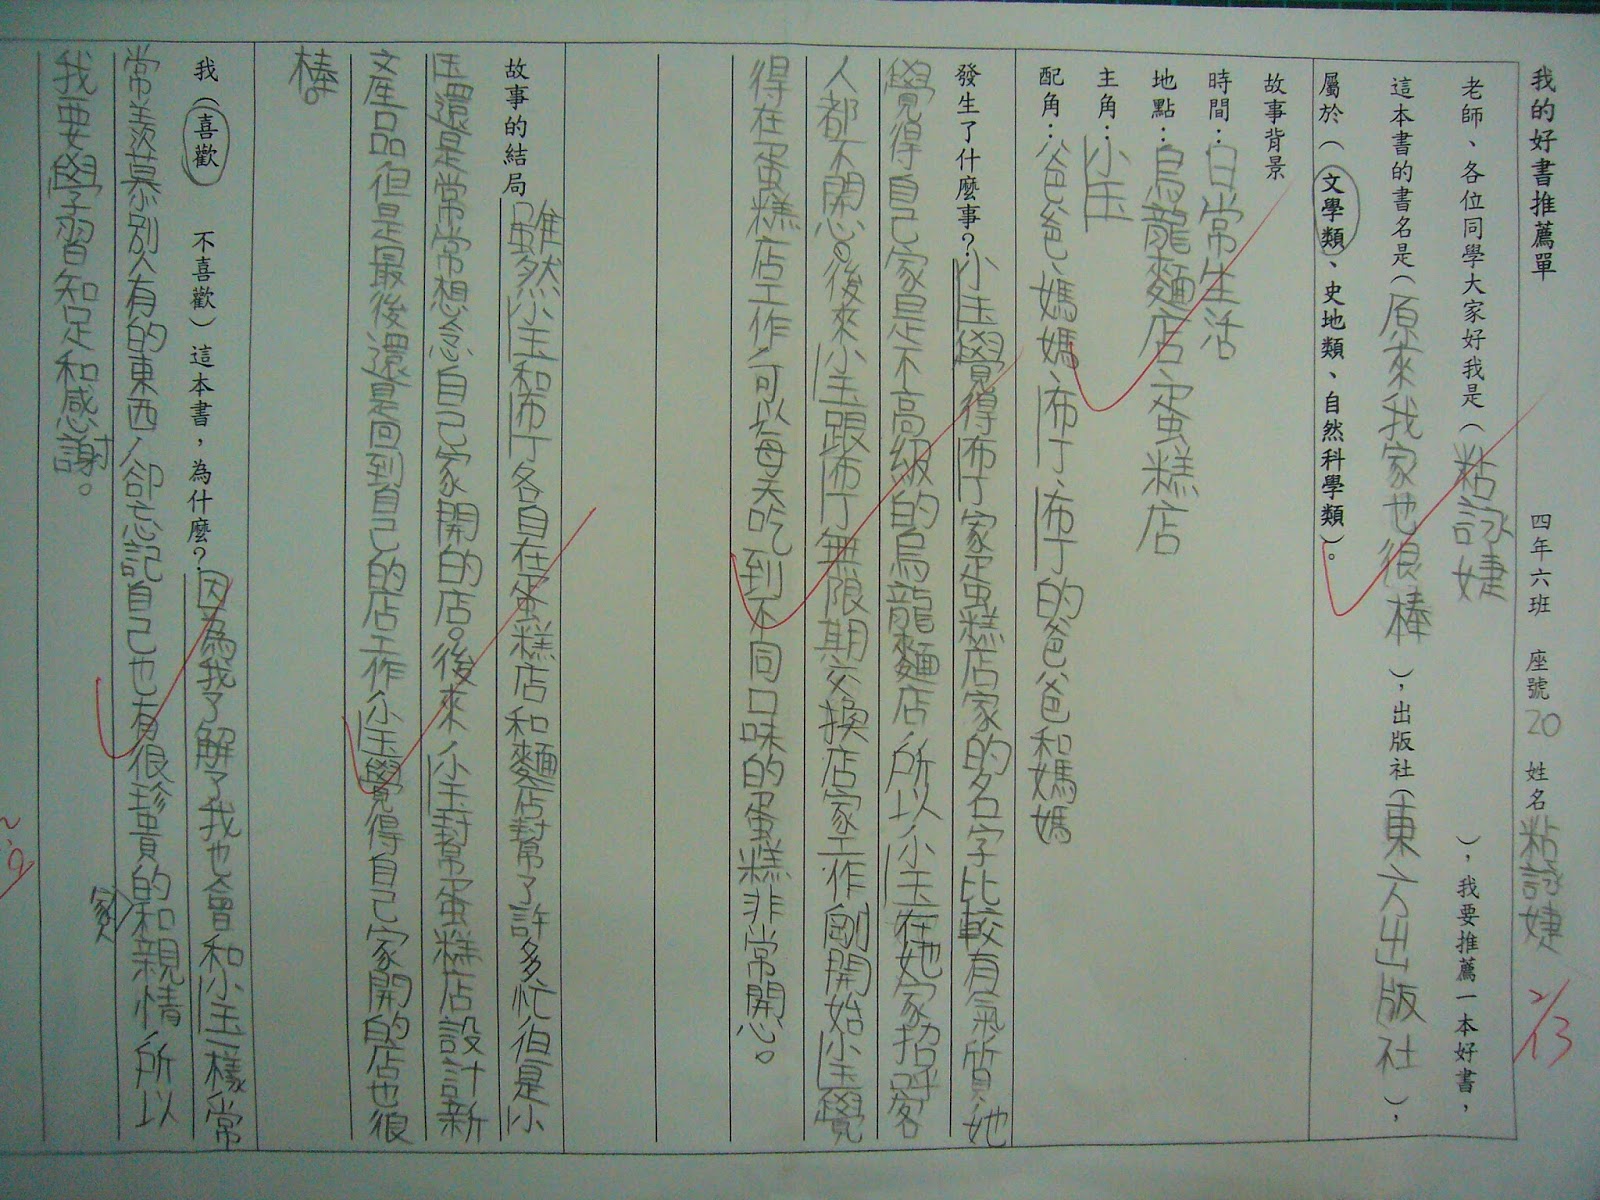 我的好書推薦單 四年六班 座號20 姓名粘詠婕 2/13
老師、各位同學大家好我是(粘詠婕),我要推薦一本好書,
這本書的書名是(原來我家也很棒),出版社(東方出版社),
屬於(文學類、史地類、自然科學類)。
故事背景
時間:白常生活
地點:烏龍麵店、蛋糕店
主角:小玉
配角:爸爸、媽媽、布丁、布丁的爸爸和媽媽
發生了什麼事?小玉覺得布丁家蛋糕店家的名字比較有氣質,她
覺得自己家是不高級的烏龍麵店,所以小玉在她家招呼客
人都不開心。後來小玉跟布丁無限期交換店家工作,剛開始小玉覺
得在蛋糕店工作,可以每天吃到不同口味的蛋糕非常開心。
故事的結局 雖然小玉和布丁各自在蛋糕店和麵店幫了許多忙,但是小
玉還是常常想念自己家開的店。後來,小玉幫蛋糕店設計新
產品,但是最後還是回到自己的店工作,小玉覺得自己家開的店也很
棒。
我(喜歡 不喜歡)這本書,為什麼?因為我了解了我也會和小玉一樣常
常羨慕別人有的東西,人卻忘記自己也有很珍貴的家和親情,所以
我要學習知足和感謝。